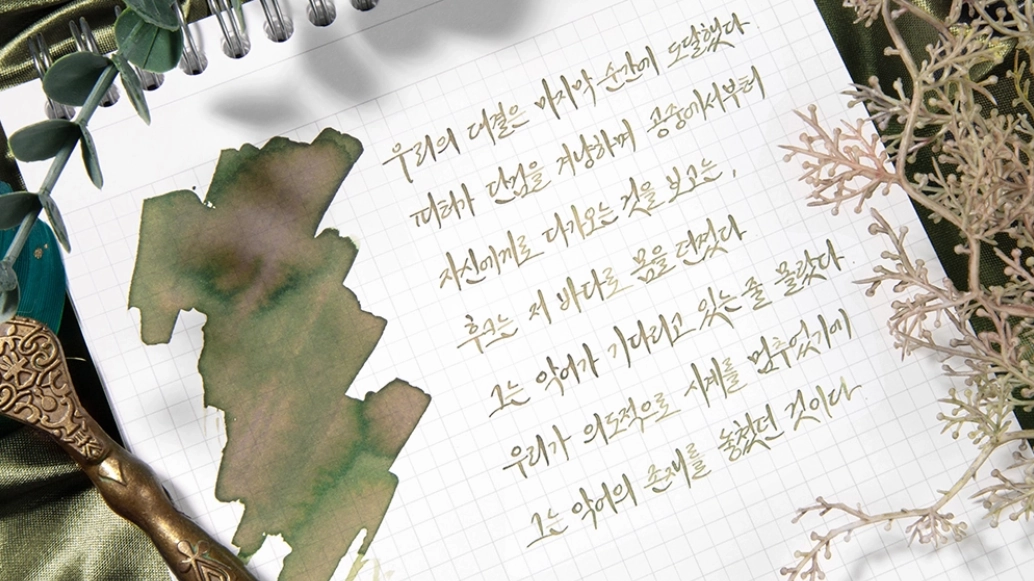 우리의 대결은 마지막 순간에 도달했다.
피터가 단검을 겨냥하며 공중에서부터
자신에게로 다가오는 것을 보고는,
후크는 저 바다로 몸을 던졌다
그는 악어가 기다리고 있는 줄 몰랐다.
우리가 의도적으로 시계를 멈추었기에
그는 악어의 존재를 놓쳤던 것이다.